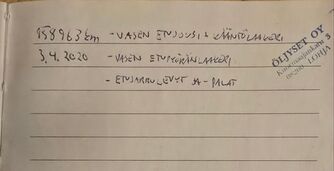 158963 km - VASEN ETUJOUSI + KÄÄNTÖLAAKERI
3.4.2020 - VASEN ETUPYÖRÄNLAAKERI
- ETUJARRULEVYT JA -PALAT
ÖLJYSET OY
LOHJA